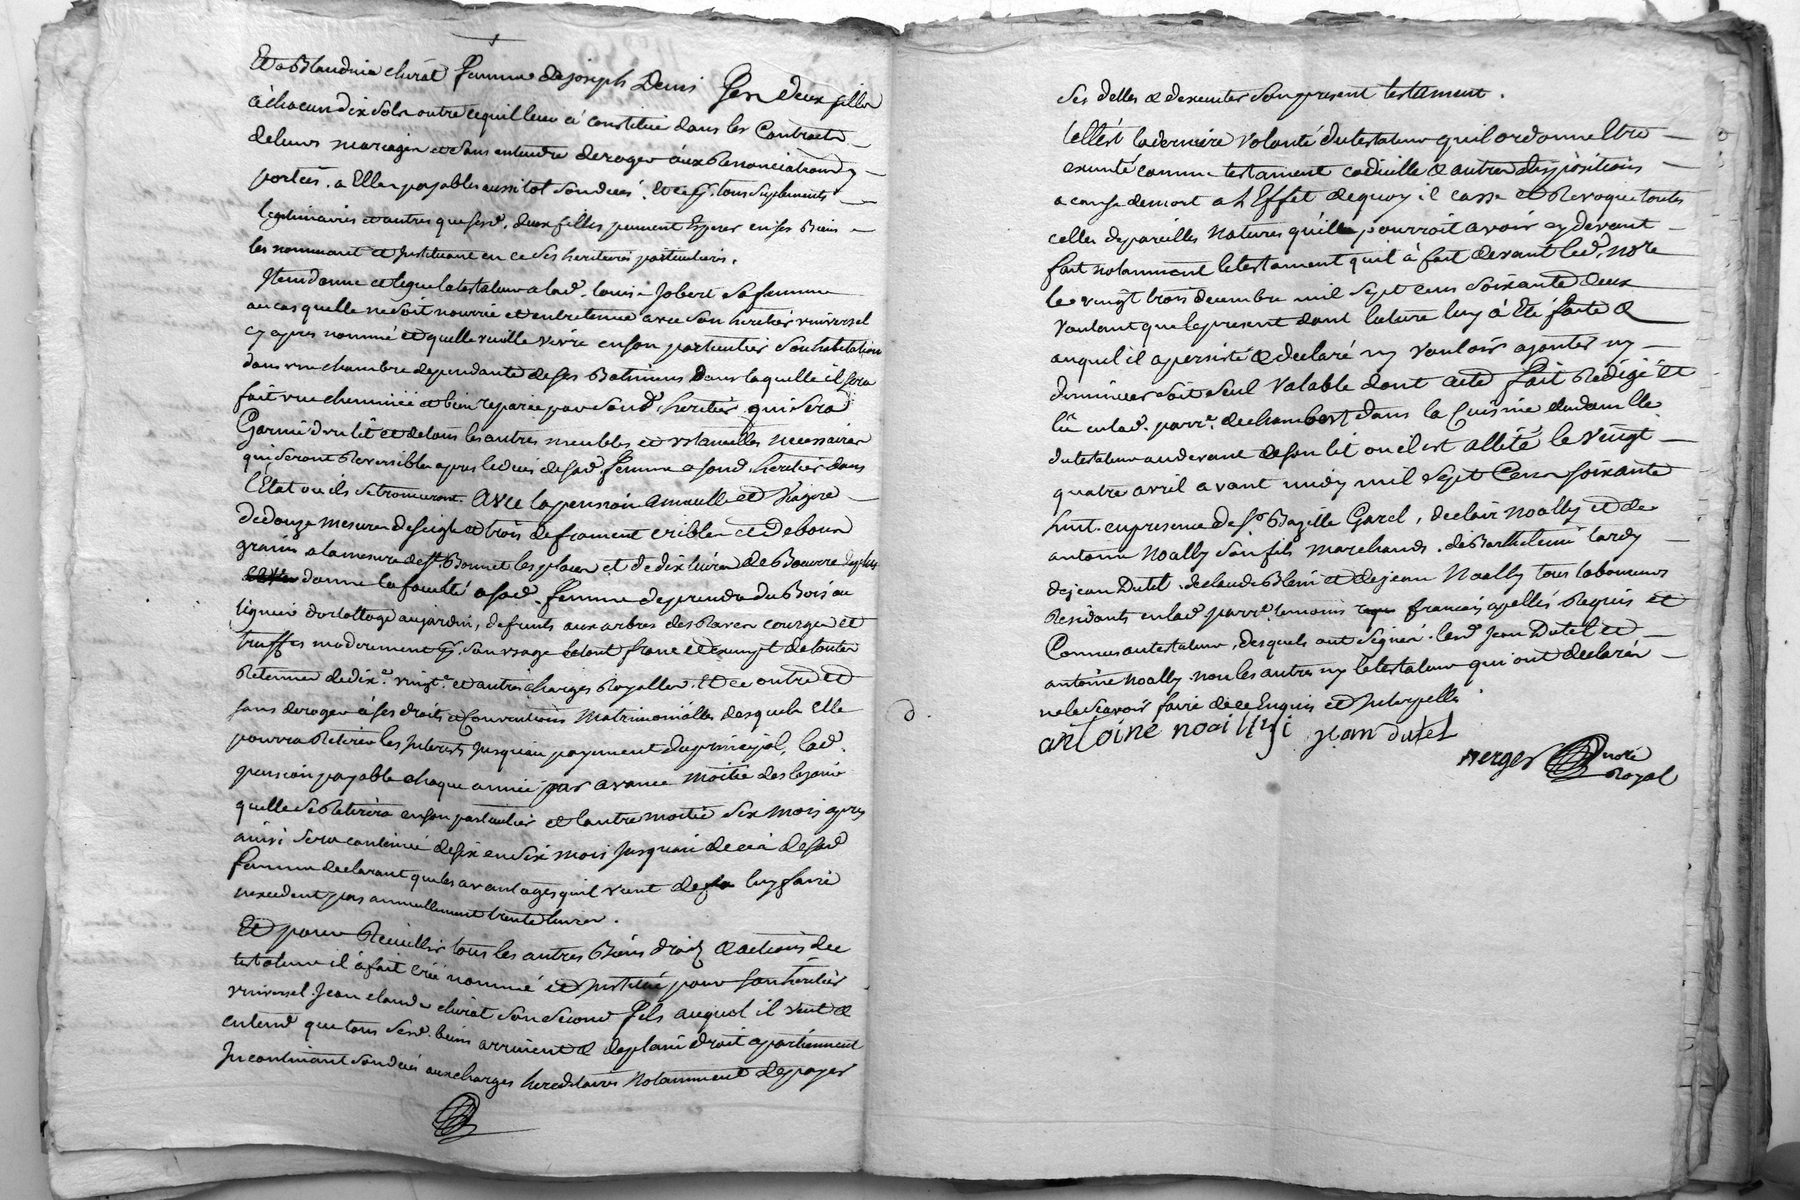 Et a Blandine chirat femme de joseph Denis ses deux filles
a chacune dix sols outre ce quil leur a constitué dans les Contracts
de leurs mariages et sans entendre deroger aux Renonciations y
portées. a Elles payables aussitot son deces. Et ce pr. tous suplements
legitimaires et autres que sesd. deux filles peuvent Esperer en ses Biens
les nommant et Instituant en ce ses heritieres particulieres.
Item donne et legue le testateur a lad. louise Jobert sa femme
au cas quelle ne soit nourrie et entretenue avec son heritier universel
cy apres nommé et quelle veuille vivre en son particulier son habitation
dans une chambre dependante de ses Batimens Dans laquelle il sera
fait une cheminée et bien reparée par sond. heritier qui sera
Garnie d'un lit et de tous les autres meubles et ustancilles necessaires
qui seront Reversibles apres le deces de sad. femme a sond. heritier dans
l'Etat ou ils se trouveront avec la pension annuelle et viagere
de douze mesures de seigle et trois de froment cribles et de bons
grains a la mesure de st Bonnet les places et de dix livres de Beurre de plus
donne la faculté a sad. femme de prendre du Bois au
lignier d'ortollage au jardin, de fruits aux arbres des Raves courges et
truffes moderement pr. son usage le tout franc et exempt de toutes
Retenues de dixe. vingte. et autres charges Royalles. Et ce outre et
sans deroger a ses droits et Conventions Matrimonialles desquels Elle
pourra Retirer les Interests jusquau payement du principal, lad.
pension payable chaque année par avance moitié des le jour
quelle se Retirera en son particulier et l'autre moitié six mois apres
ainsi sera continué de six en six mois jusquau deces de sad.
femme declarant que les avantages quil vient de luy faire
nexcedent pas annuellement trente livres.
Et pour Recueillir tous les autres Biens droits & actions du
testateur il a fait créé nommé et Institué pour son heritier
universel Jean claude chirat son second fils auquel il veut &
entend que tous sesd. biens arrivent & de plain droit apartiennent
Incontinant son deces aux charges hereditaires Notamment de payer
ses dettes & dexecuter son present testament.
telle est la derniere volonté du testateur quil ordonne Etre
executé comme testament codicille & autres dispositions
a cause de mort a l'Effet dequoy il casse et Revoque toutes
celles de pareilles Natures quil pourroit avoir cy devant
fait notamment le testament quil à fait devant led. nore
le vingt trois decembre mil sept cens soixante deux
voulant que le present dont lecture luy à Eté faite &
auquel il a persisté & declaré ny vouloir ajouter ny
diminuer soit seul valable dont acte fait Redigé et
lû en lad. parre. de chambost dans la Cuisine du domicille
du testateur au devant de son lit ou il est allité le vingt
quatre avril avant midy mil sept Cens soixante
huit. en presence de sr. Bazille Garel, de clair Noally et de
antoine Noally son fils marchands. de Barthelemi tardy
de jean Dutel. de claude Blein et de jean Noally tous laboureurs
Residants en lad. parre. temoins francois apellés Requis et
Connus au testateur, desquels ont signé. led. Jean Dutel et
antoine Noally. non les autres ny le testateur qui ont declarés
ne le scavoir faire de ce Enquis et Interpellés.
antoine noailly jean dutel
Merger nore
Royal